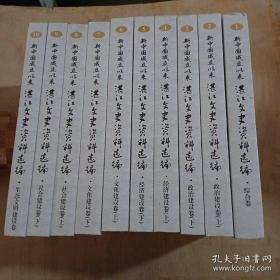 10 新中国成立以来 湛江文史资料选编 · 生态文明建设卷
9 新中国成立以来 湛江文史资料选编 · 社会建设卷(下)
8 新中国成立以来 湛江文史资料选编 · 社会建设卷(上)
7 新中国成立以来 湛江文史资料选编 · 文化建设卷(下)
6 新中国成立以来 湛江文史资料选编 · 文化建设卷(上)
5 新中国成立以来 湛江文史资料选编 · 经济建设卷(下)
4 新中国成立以来 湛江文史资料选编 · 经济建设卷(上)
3 新中国成立以来 湛江文史资料选编 · 政治建设卷(下)
2 新中国成立以来 湛江文史资料选编 · 政治建设卷(上)
1 新中国成立以来 湛江文史资料选编 · 综合卷
孔夫子旧书网